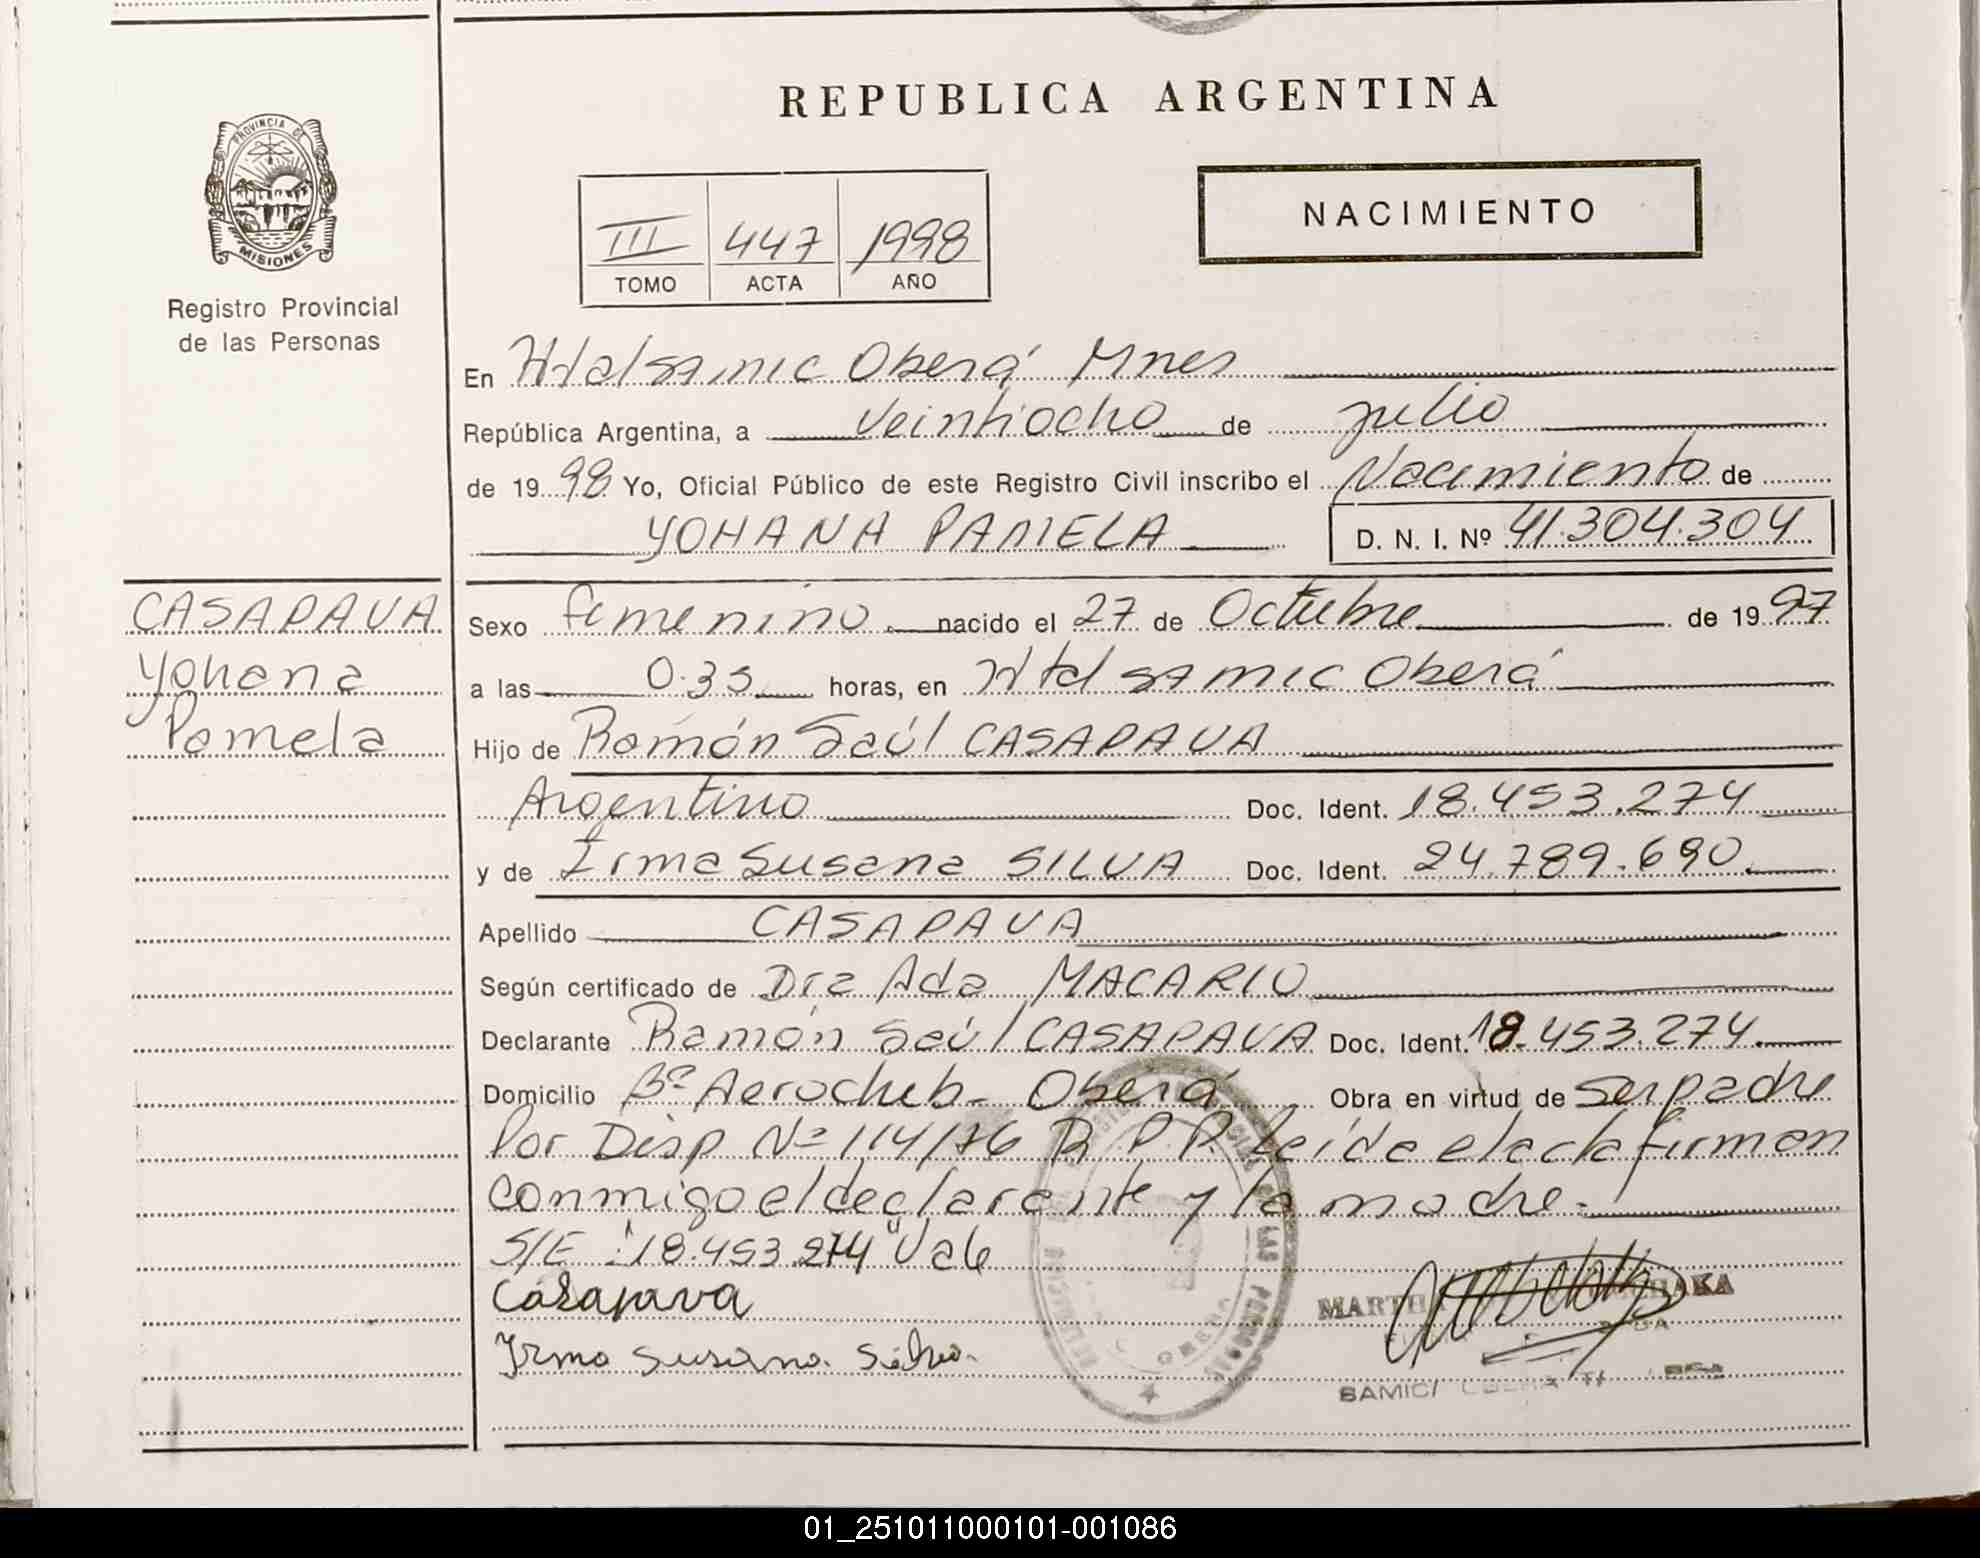 REPUBLICA ARGENTINA
PROVINCIA DE
MISIONES
Registro Provincial
de las Personas
NACIMIENTO
III 447 1998
TOMO ACTA AÑO
En Htal SAMIC Oberá Mnes
República Argentina, a veintiocho de julio
de 1998 Yo, Oficial Público de este Registro Civil inscribo el Nacimiento de
YOHANA PAMELA D. N. I. Nº 41.304.304
CASAPAVA
Yohana
Pamela
Sexo femenino nacido el 27 de Octubre de 1997
a las 0.35 horas, en Htal SAMIC Oberá
Hijo de Ramón Saúl CASAPAVA
Argentino Doc. Ident. 18.453.274
y de Irma Susana SILVA Doc. Ident. 24.789.690
Apellido CASAPAVA
Según certificado de Dra Ada MACARIO
Declarante Ramón Saúl CASAPAVA Doc. Ident. 18.453.274
Domicilio Bº Aerocheb - Oberá Obra en virtud de ser padre
Por Disp Nº 114/76 R.P.P. leída el acta firman
conmigo el declarante y la madre.-
S/E: "18.453.274" Vale
Casapava
Irma Susana Silva.
MARTHA
SAMIC/ OBERA
LAS PERSONAS
OBERA
01_251011000101-001086